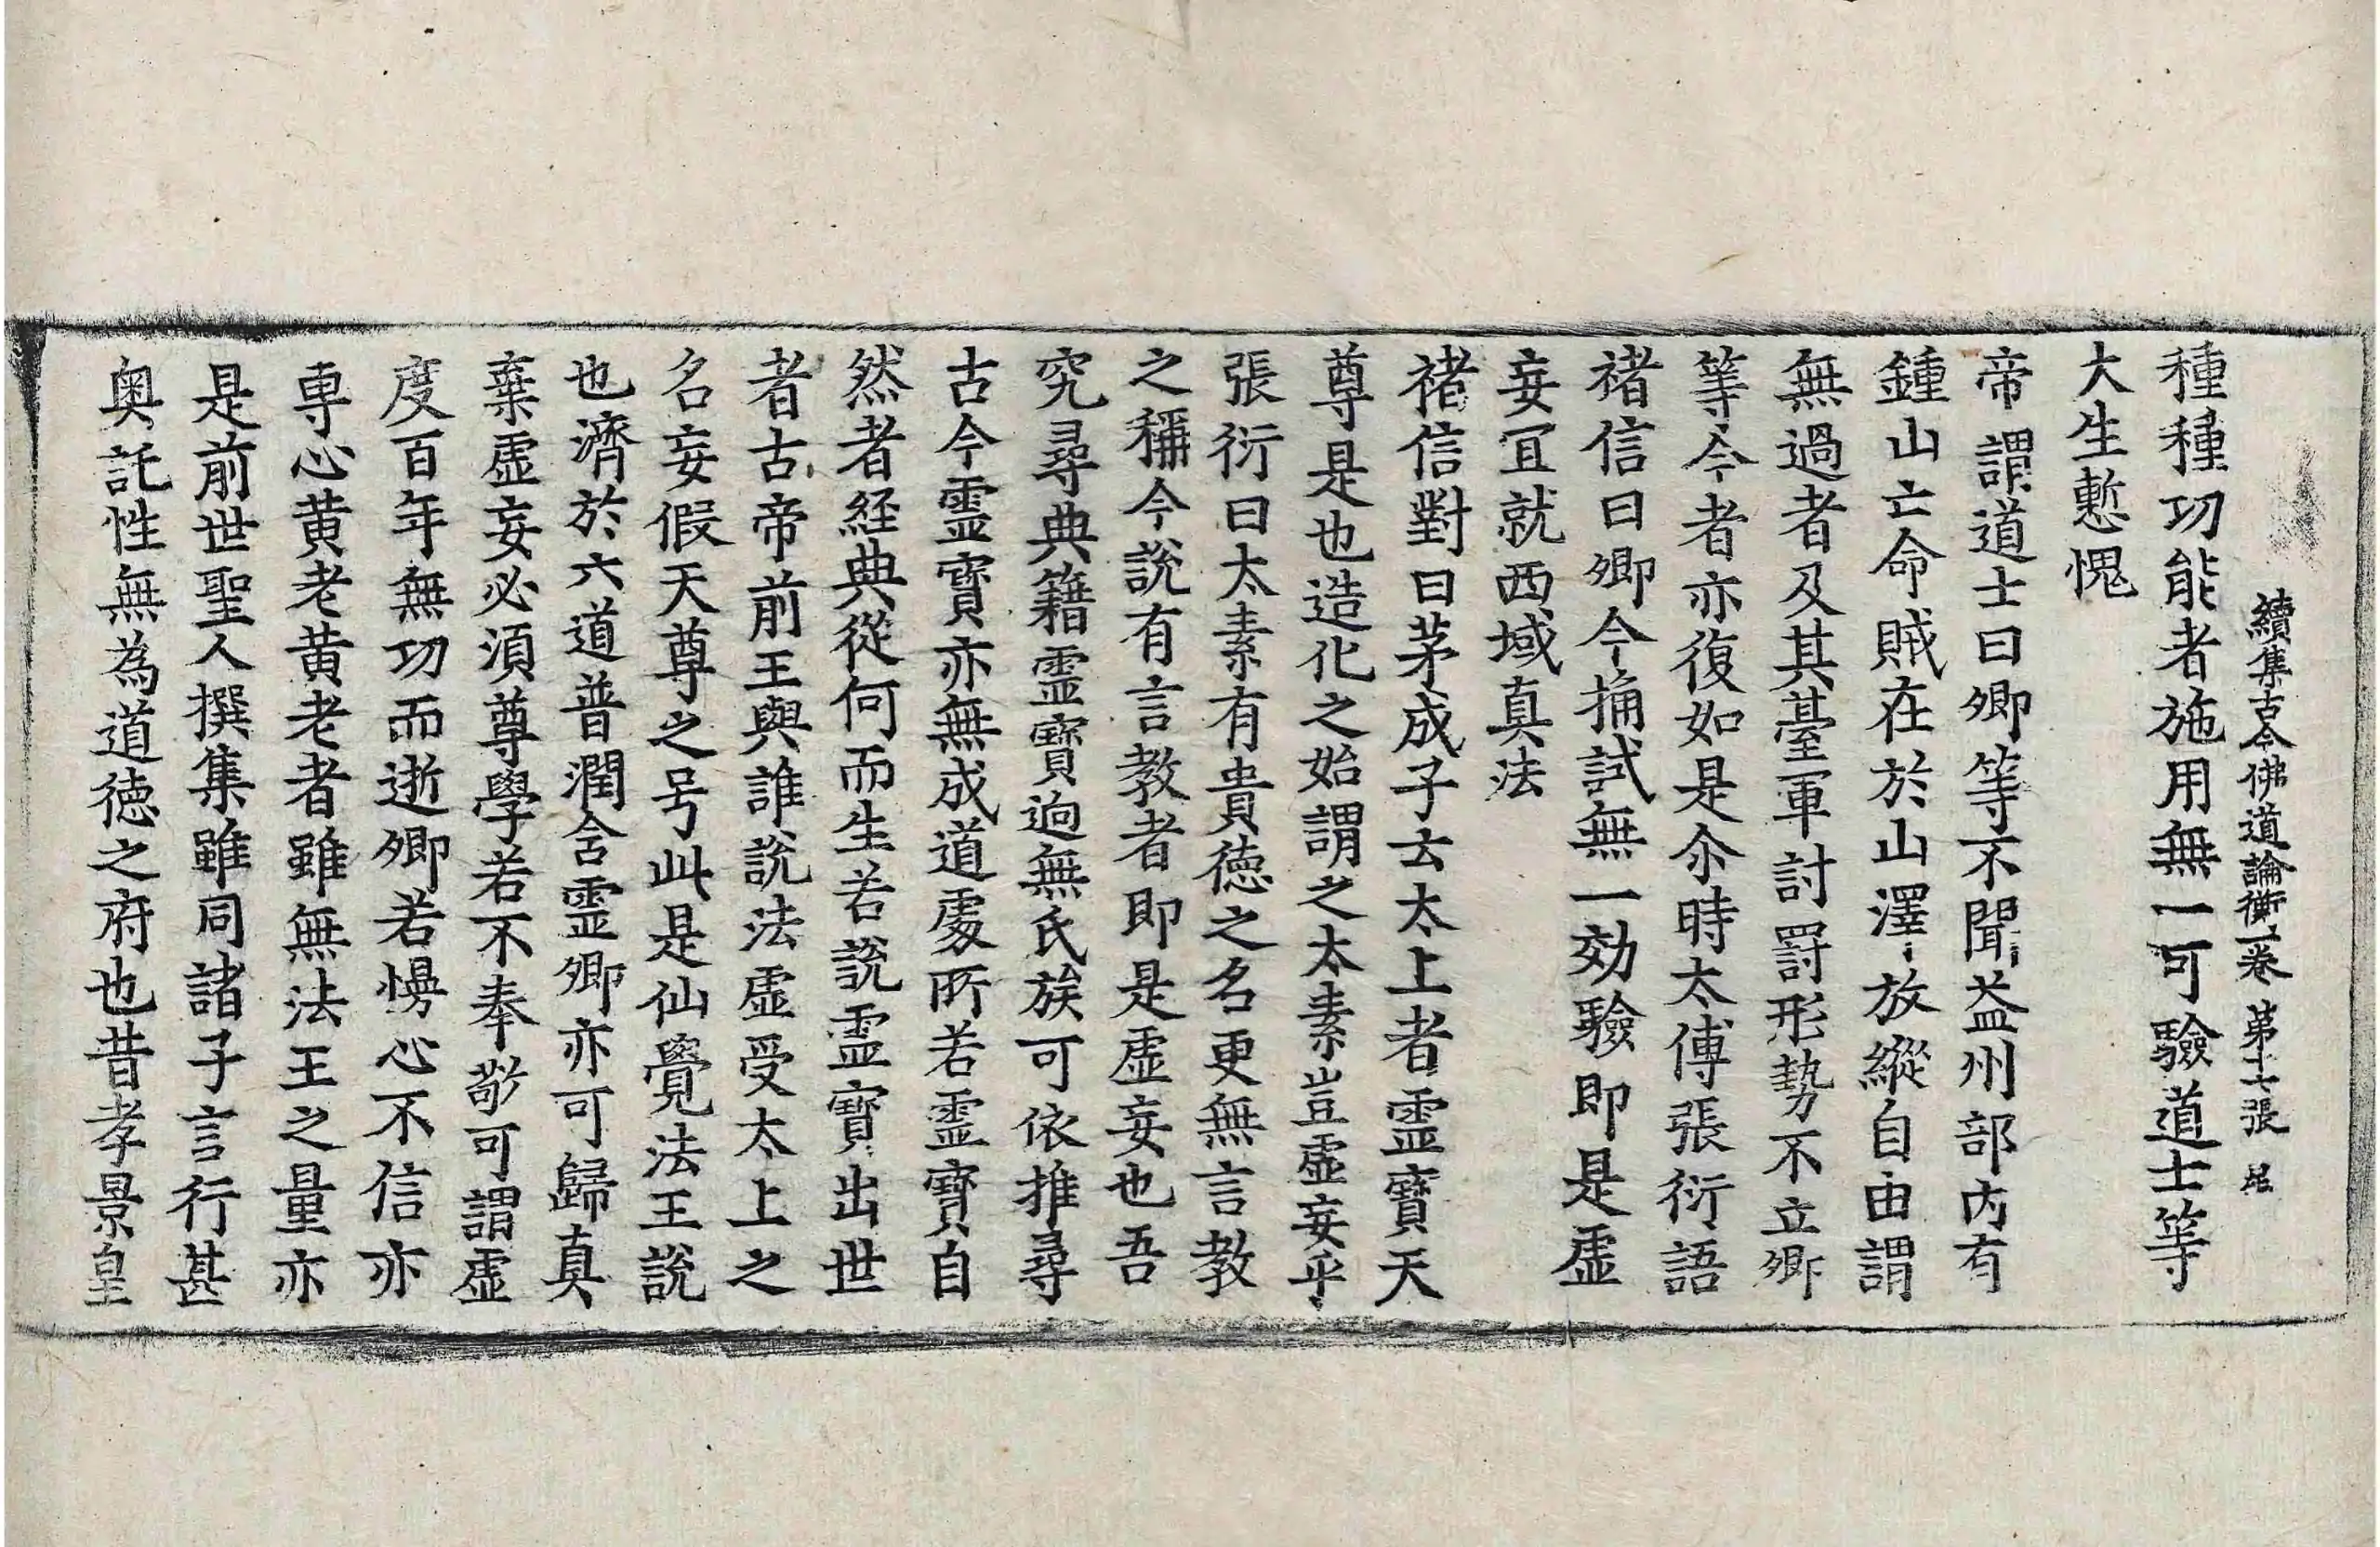 續集古今佛道論衡一卷 第十七張 㞐
種種功能者施用無一可驗道士等
大生慙愧
帝謂道士曰卿等不聞益州部内有
鍾山亡命賊在於山澤放縱自由謂
無過者及其臺軍討罸形勢不立卿
等今者亦復如是尒時太傅張衍語
禇信曰卿今捔試無一効驗即是虚
妄冝就西域真法
禇信對曰茅成子云太上者霊寶天
尊是也造化之始謂之太素豈虚妄乎
張衍曰太素有貴徳之名更無言教
之稱今說有言教者即是虚妄也吾
究尋典籍霊寶逈無氏族可依推尋
古今霊寶亦無成道處所若霊寶自
然者経典從何而生若說霊寶出世
者古帝前王與誰說法虚受太上之
名妄假天尊之号此是仙覺法王說
也濟於六道普潤含霊卿亦可歸真
棄虚妄必須尊學若不奉敬可謂虚
度百年無功而逝卿若慢心不信亦
専心黄老黄老者雖無法王之量亦
是前世聖人撰集雖同諸子言行甚
奥託性無為道徳之府也昔孝景皇